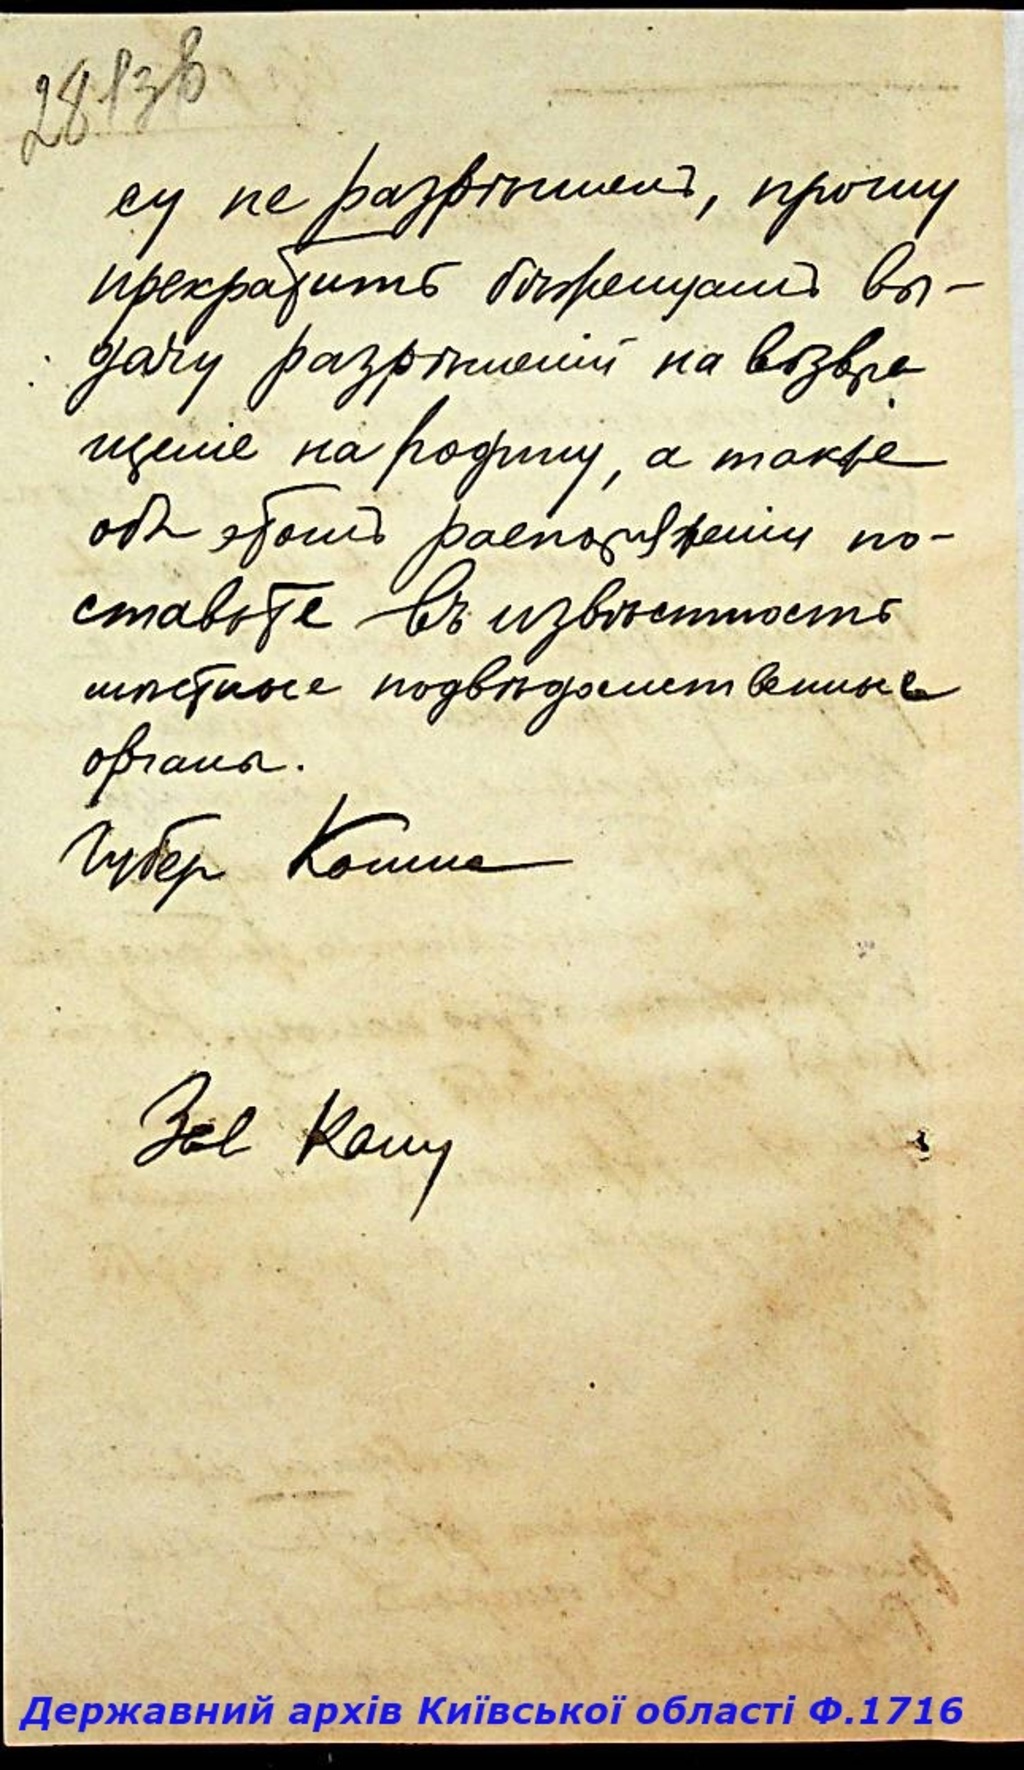 28 13б
су не разрѣшенъ, прошу
прекратить бѣженцамъ вы-
дачу разрѣшеній на возвра
щеніе на родину, а также
объ этомъ распоряженіи по-
ставьте въ извѣстность
мѣстные подвѣдомственные
органы.
Губер
Зав
Державний архів Київської області Ф.1716